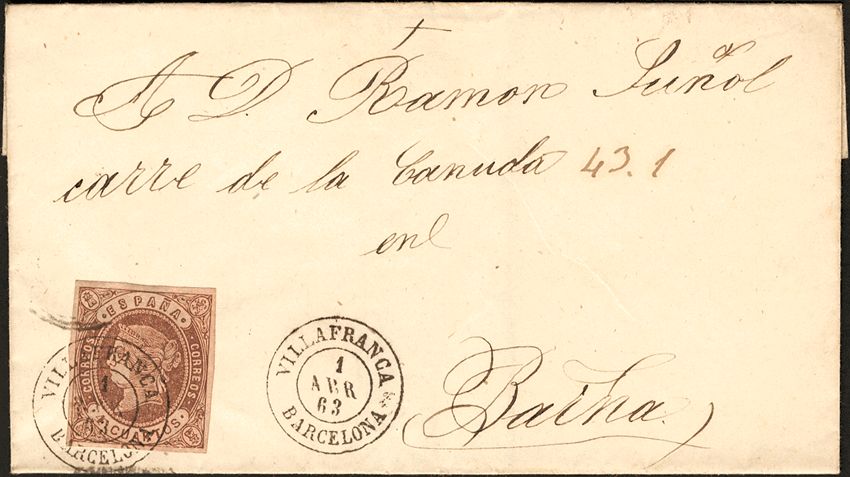 A D. Ramon Suñol
carre de la Canuda 43.1
en
Barna.
ESPAÑA
CORREOS
CORREOS
4 CUARTOS
VILLAFRANCA
1
BARCELONA
VILLAFRANCA
1
ABR
63
BARCELONA